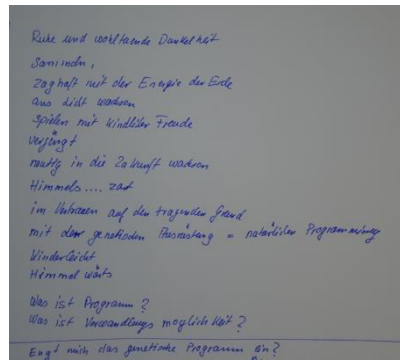 Ruhe und wohltuende Dunkelheit
Sammeln,
zaghaft mit der Energie der Erde
ans Licht wachsen
spielen mit kindlicher Freude
verjüngt
mutig in die Zukunft wachsen
Himmels.... zart
im Vertrauen auf den tragenden Grund
mit der genetischen Ausrüstung = natürlichen Programmierung
Kinderleicht
Himmel wärts
Was ist Programm?
Was ist Verwandlungs möglichkeit?
Engt mich das genetische Programm ein?